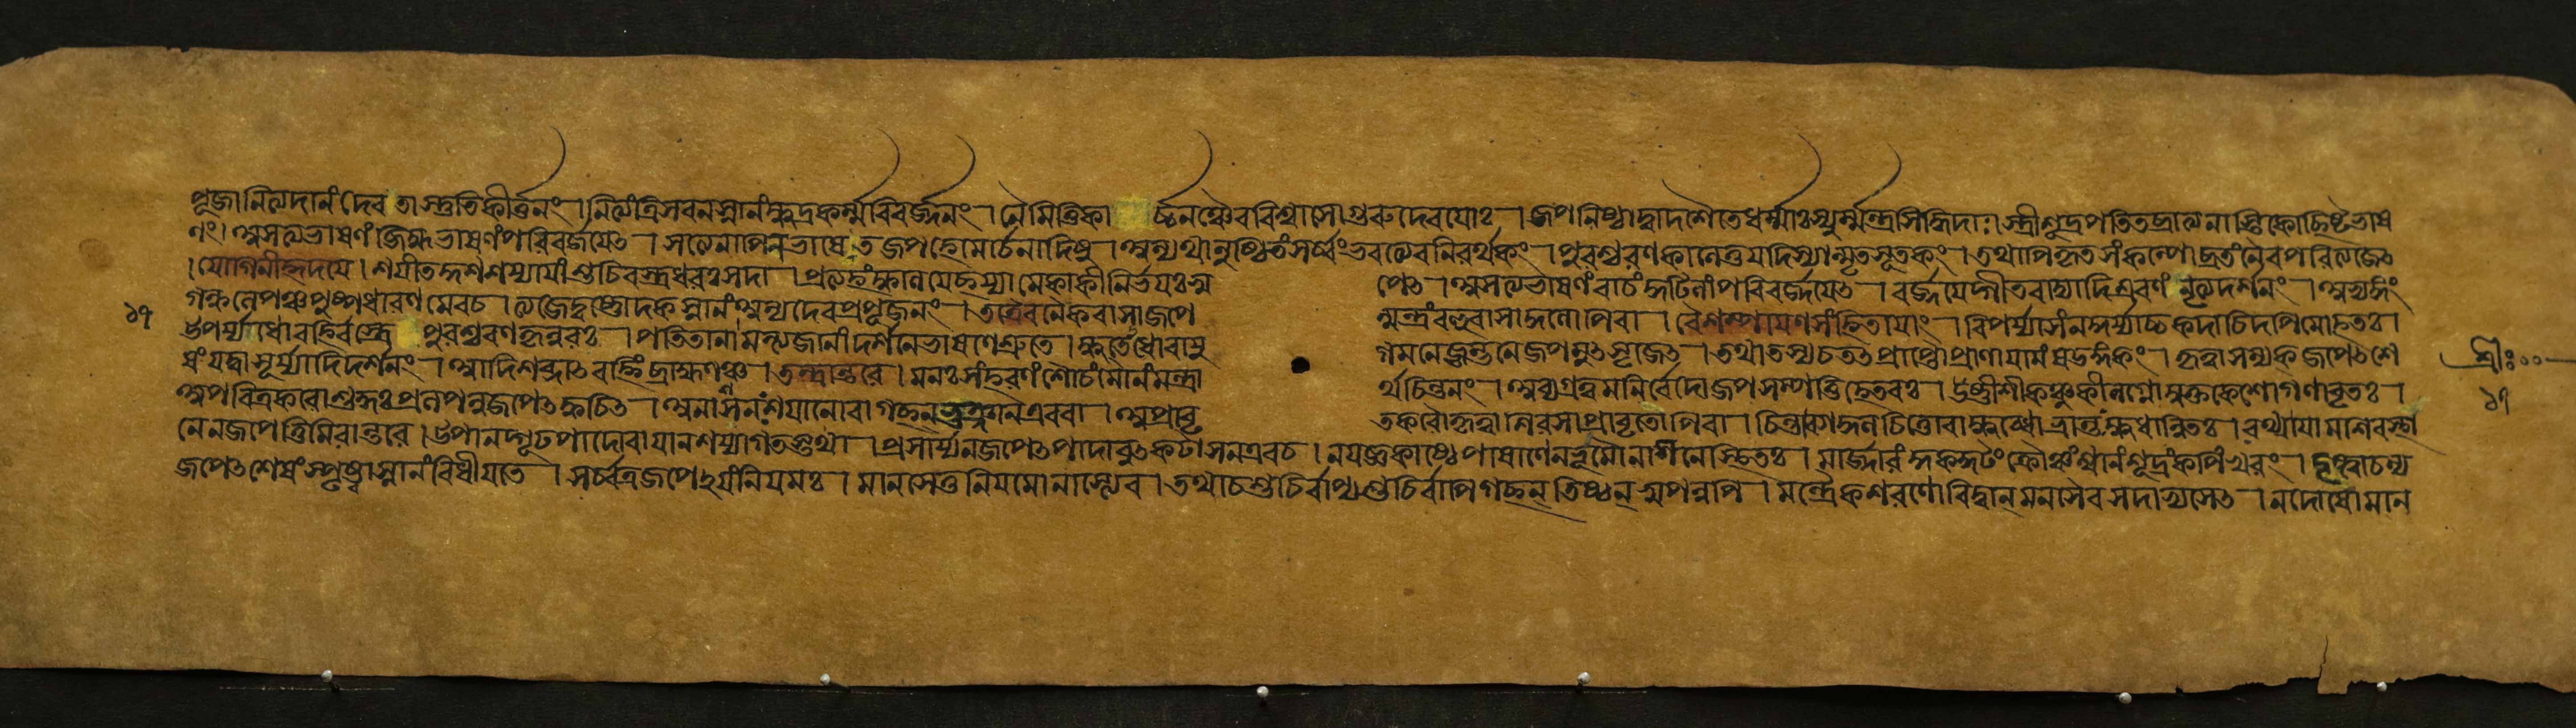 পূজানিত্যদানং দেবতাস্তুতিকীর্ত্তনং । নিত্যং ত্রিসবনস্নানং ক্ষুদ্রকর্ম্মবিবর্জ্জনং । নৈমিত্তিকার্চ্চনঞ্চৈব বিশ্বাসোগুরুদেবয়োঃ । জপনিষ্ঠাদ্বাদশৈতে ধর্ম্মাঃস্যুর্ম্মন্ত্রসিদ্ধিদাঃ । স্ত্রীশূদ্রপতিতব্রাত্যনাস্তিকোচ্ছিষ্টভাষ
ণং । অসত্যভাষণং জিহ্মভাষণং পরিবর্জয়েৎ । সত্যেনাপি ন ভাষেত জপহোমার্চনাদিষু । অন্যথানুষ্ঠিতং সর্ব্বং ভবত্যেব নিরর্থকং । পুরশ্চরণকালে তু যদি স্যান্মৃতসূতকং । তথাপি কৃতসংকল্পো ব্রতং নৈব পরিত্যজেৎ
। যোগিনীহৃদয়ে । শয়ীত কুশশয্যায়াং শুচিবস্ত্রধরঃ সদা । প্রত্যহং ক্ষালয়েচ্ছয্যামেকাকী নির্ভয়ঃ স্ব
পেৎ । অসত্যভাষণং বাচং কুটিলাং পরিবর্জ্জয়েৎ । বর্জ্জয়েদ্গীতবাদ্যাদিশ্রবণং নৃত্যদর্শনং । অভ্যঙ্গং
গন্ধলেপঞ্চ পুষ্পধারণমেব চ । ত্যজেদুষ্ণোদকস্নানং অন্যদেবপ্রপূজনং । তত্রৈব নৈকবাসা জপে
ন্মন্ত্রং বহুবাসাকুলোপি বা । বৈশম্পায়ণসংহিতায়াং । বিপর্য্যাসং ন কুর্য্যাচ্চ কদাচিদপি মোহতঃ ।
১৭
উপর্য্যধো বহির্বস্ত্রে পুরশ্চরণকৃন্নরঃ । পতিতানামন্ত্যজানাং দর্শনে ভাষণে শ্রুতে । ক্ষুতেঽধোবায়ু
গমনে জৃম্ভনে জপমুৎসৃজেৎ । তথাতস্য চ তৎপ্রাপ্তৌ প্রাণায়ামং ষড়ঙ্গকং । কৃত্বা সম্যক্ জপেৎশে
ষং যদ্বা সূর্য্যাদিদর্শনং । আদিশব্দাৎ বহ্নিং ব্রাহ্মণঞ্চ । তন্ত্রান্তরে । মনঃসংহরণং শৌচং মৌনং মন্ত্রা
র্থচিন্তনং । অব্যগ্রত্বমনির্বেদো জপসম্পত্তিহেতবঃ । উষ্ণীশী কঞ্চুকী নগ্নো মুক্তকেশো গণাবৃতঃ ।
শ্রীঃ
১৭
অপবিত্রকরোশুদ্ধঃ প্রলপন্ন জপেৎ ক্বচিৎ । অনাসনঃ শয়ানো বা গচ্ছন্ ভুঞ্জান এব বা । অপ্রাবৃ
তকরৌ কৃত্বা শিরসা প্রাবৃতোপি বা । চিন্তাব্যাকুলচিত্তো বা ক্ষুব্ধো ভ্রান্তঃ ক্ষুধান্বিতঃ । রথ্যায়ামশিবস্থা
নে ন জপেত্তিমিরান্তরে । উপানদ্গূঢপাদো বা যানশয্যাগতস্তথা । প্রসার্য্য ন জপেৎ পাদাবুৎকটাসন এব চ । ন যজ্ঞকাষ্ঠে পাষাণে ন ভূমৌ নাসনে স্থিতঃ । মার্জ্জারং কুক্কুটং ক্রৌঞ্চং শ্বানং শূদ্রং কপিং খরং । দৃষ্ট্বাচম্য
জপেৎ শেষং স্পৃষ্ট্বা স্নানং বিধীয়তে । সর্ব্বত্র জপেঽয়ং নিয়মঃ । মানসে তু নিয়মো নাস্ত্যেব । তথাচ শুচির্বাপ্যশুচির্বাপি গচ্ছন্ তিষ্ঠন্ স্বপন্নপি । মন্ত্রৈকশরণো বিদ্বান্ মনসৈব সদাভ্যসেৎ । ন দোষো মান